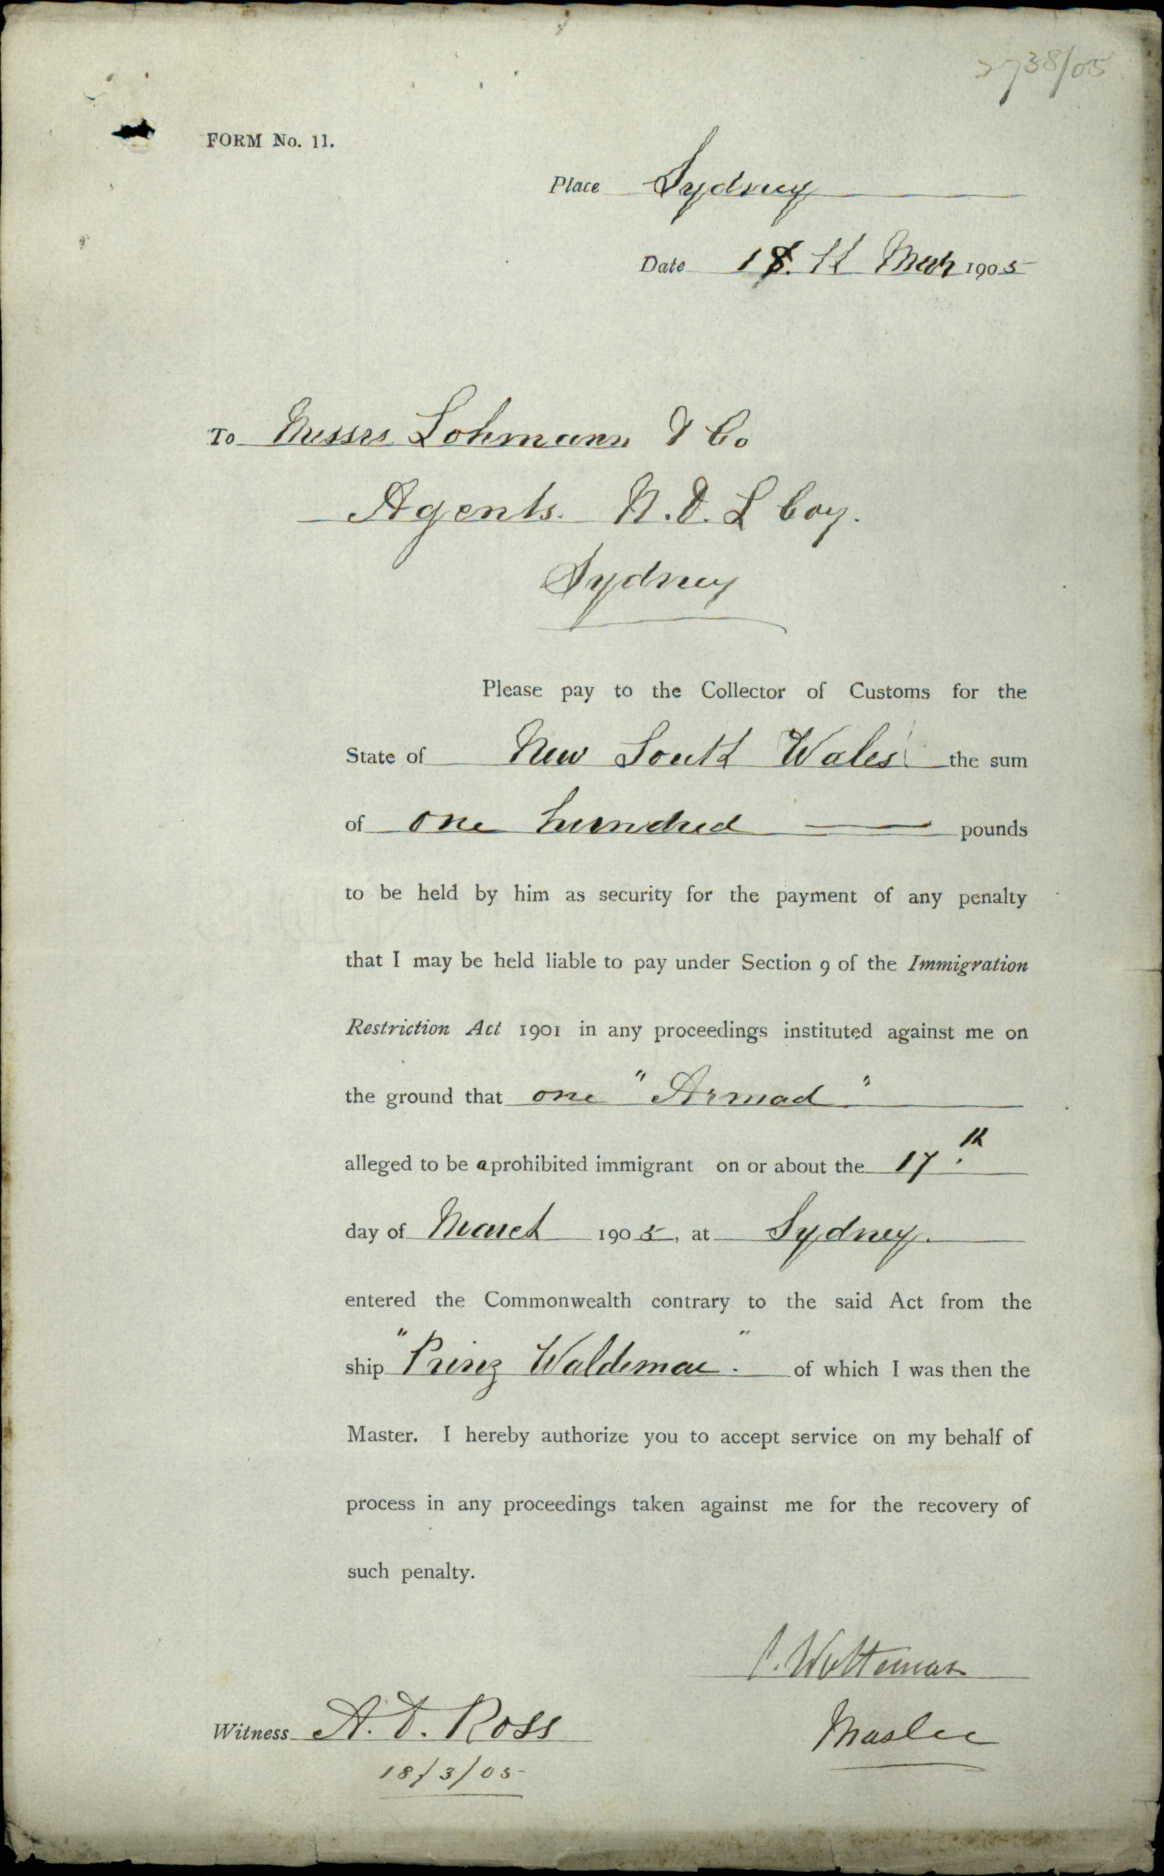 2738/05
FORM No. 11.
Place Sydney
Date 18th March 1905
To Messrs Lohmann & Co
Agents. N.D.L Coy.
Sydney
Please pay to the Collector of Customs for the
State of New South Wales the sum
of one hundred — pounds
to be held by him as security for the payment of any penalty
that I may be held liable to pay under Section 9 of the Immigration
Restriction Act 1901 in any proceedings instituted against me on
the ground that one "Armad"
alleged to be a prohibited immigrant on or about the 17th
day of March 1905, at Sydney.
entered the Commonwealth contrary to the said Act from the
ship "Prinz Waldemar". of which I was then the
Master. I hereby authorize you to accept service on my behalf of
process in any proceedings taken against me for the recovery of
such penalty.
Witness A. D. Ross
18/3/05
Master